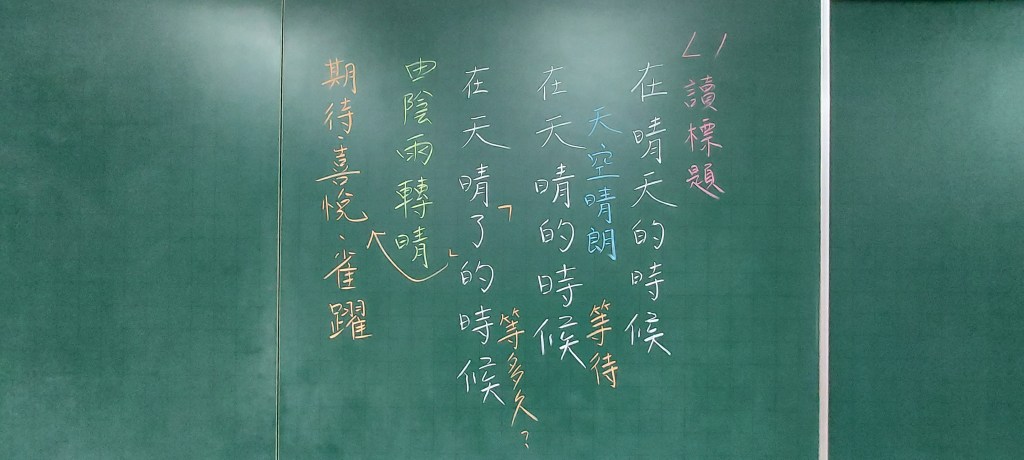 L1
讀標題
在晴天的時候
天空晴朗
等待
在天晴的時候
等多久?
在天晴了的時候
由陰雨轉晴
期待、喜悅、雀躍